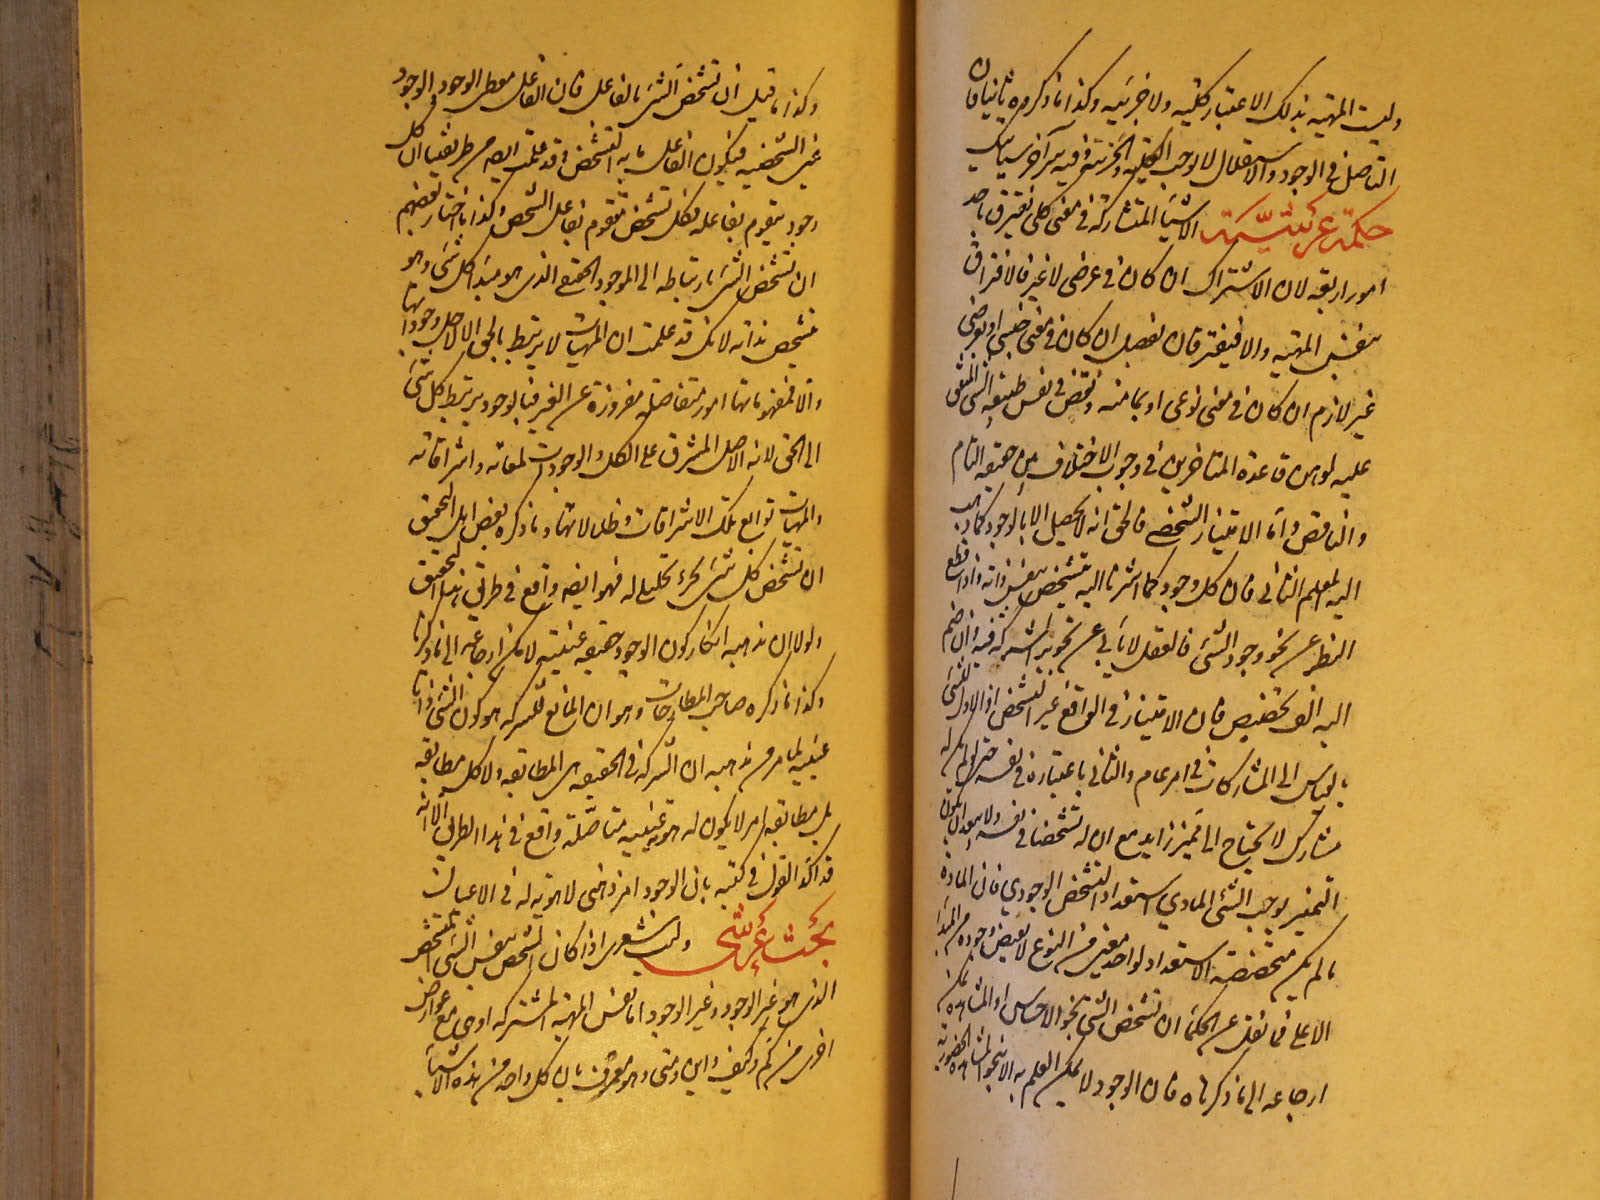 وليست المهية بذلك الاعتبار كلية ولا جزئية وكذا ما ذكره ثانيا فان
التاصل في الوجود والاستقلال لا يوجب الكلية والجزئية وفيه سر آخر سيأتيك
حكمة عرشية الاشيا المتشاركة في معنى كلي تفترق باحد
امور اربعه لان الاشتراك ان كان في عرضي لا غير فالافتراق
بنفس المهية والا فيفترقان بفصل ان كان في معنى جنسي او بعرضي
غير لازم ان كان في معنى نوعي او بتمامية ونقص في نفس طبيعة الشي المتفق
عليه لوهن قاعدة المتاخرين في وجوب الاختلاف بين حقيقة التام
والناقص واما الامتياز الشخصي فالحق انه لا يحصل الا بالوجود كما ذهب
اليه المعلم الثاني فان كل وجود كما اشرنا اليه متشخص بنفس ذاته واذا قطع
النظر عن نحو وجود الشي فالعقل لا يأبى عن تجويز الشركة فيه وان ضم
اليه الف تخصيص فان الامتياز في الواقع غير التشخص اذ الاول للشي
بالقياس الى المشاركات في امر عام والثاني باعتباره في نفسه حتى لو لم يكن له
مشارك لا يحتاج الى مميز زايد مع ان له تشخصا في نفسه ولا يبعد ان يكون
التميز يوجب للشي المادي استعداد التشخص الوجودي فان المادة
ما لم يكن متخصصة الاستعداد لواحد معين من النوع لا يفيض وجوده من المبدا
الاعلى فما نقل عن الحكما ان تشخص الشي بنحو الاحساس او المشاهدة يمكن
ارجاعه الى ما ذكرناه فان الوجود لا يمكن العلم به الا بنحو المشاهدة الحضورية
وكذا ما قيل ان تشخص الشي بالفاعل فان الفاعل معطي الوجود والوجود
عين الشخصية فيكون الفاعل ما به التشخص وقد علمت ايضه من طريقتنا ان كل
وجود يتقوم بفاعله فكل تشخص متقوم بفاعل الشخص وكذا ما اختار بعضهم
ان تشخص الشي بارتباطه الى الموجود الحقيقي الذي هو مبدا كل شي وهو
متشخص بذاته لانك قد علمت ان المهيات لا يرتبط بالحق الا لاجل وجوداتها
والا فمفهوماتها امور متفاصلة مفروزة عن الغير فبالوجود يرتبط كل شي
الى الحق لانه الاصل المشرق على الكل والوجودات لمعاته واشراقاته
والمهيات توابع تلك الاشراقات وظلالاتها وما ذكره بعض اهل التحقيق
ان تشخص كل شي بجزء تحليلي له فهو ايضه واقع في طريق هذا التحقيق
ولولا ان مذهبه انكار كون الوجود حقيقة عينية لامكن ارجاعه الى ما ذكرنا
وكذا ما ذكره صاحب المطارحات وهو ان المانع للشركة هو كون الشي ذاتا
عينية لما مر من مذهبه ان الشركة في الحقيقة هي المطابقة ولا كل مطابقة
بل مطابقة امر لا يكون له هوية عينية متاصلة واقع في هذا الطريق الا انه
قد اكد القول في كتبه بان الوجود امر ذهني لا هوية له في الاعيان
بحث عرشي وليت شعري اذا كان التشخص بنفس الشي المتشخص
الذي هو غير الوجود وغير الوجود اما نفس المهية المشتركة او هي مع عوارض
اخرى من كم وكيف واين ومتى وهو معترف بان كل واحد من هذه الاشياء